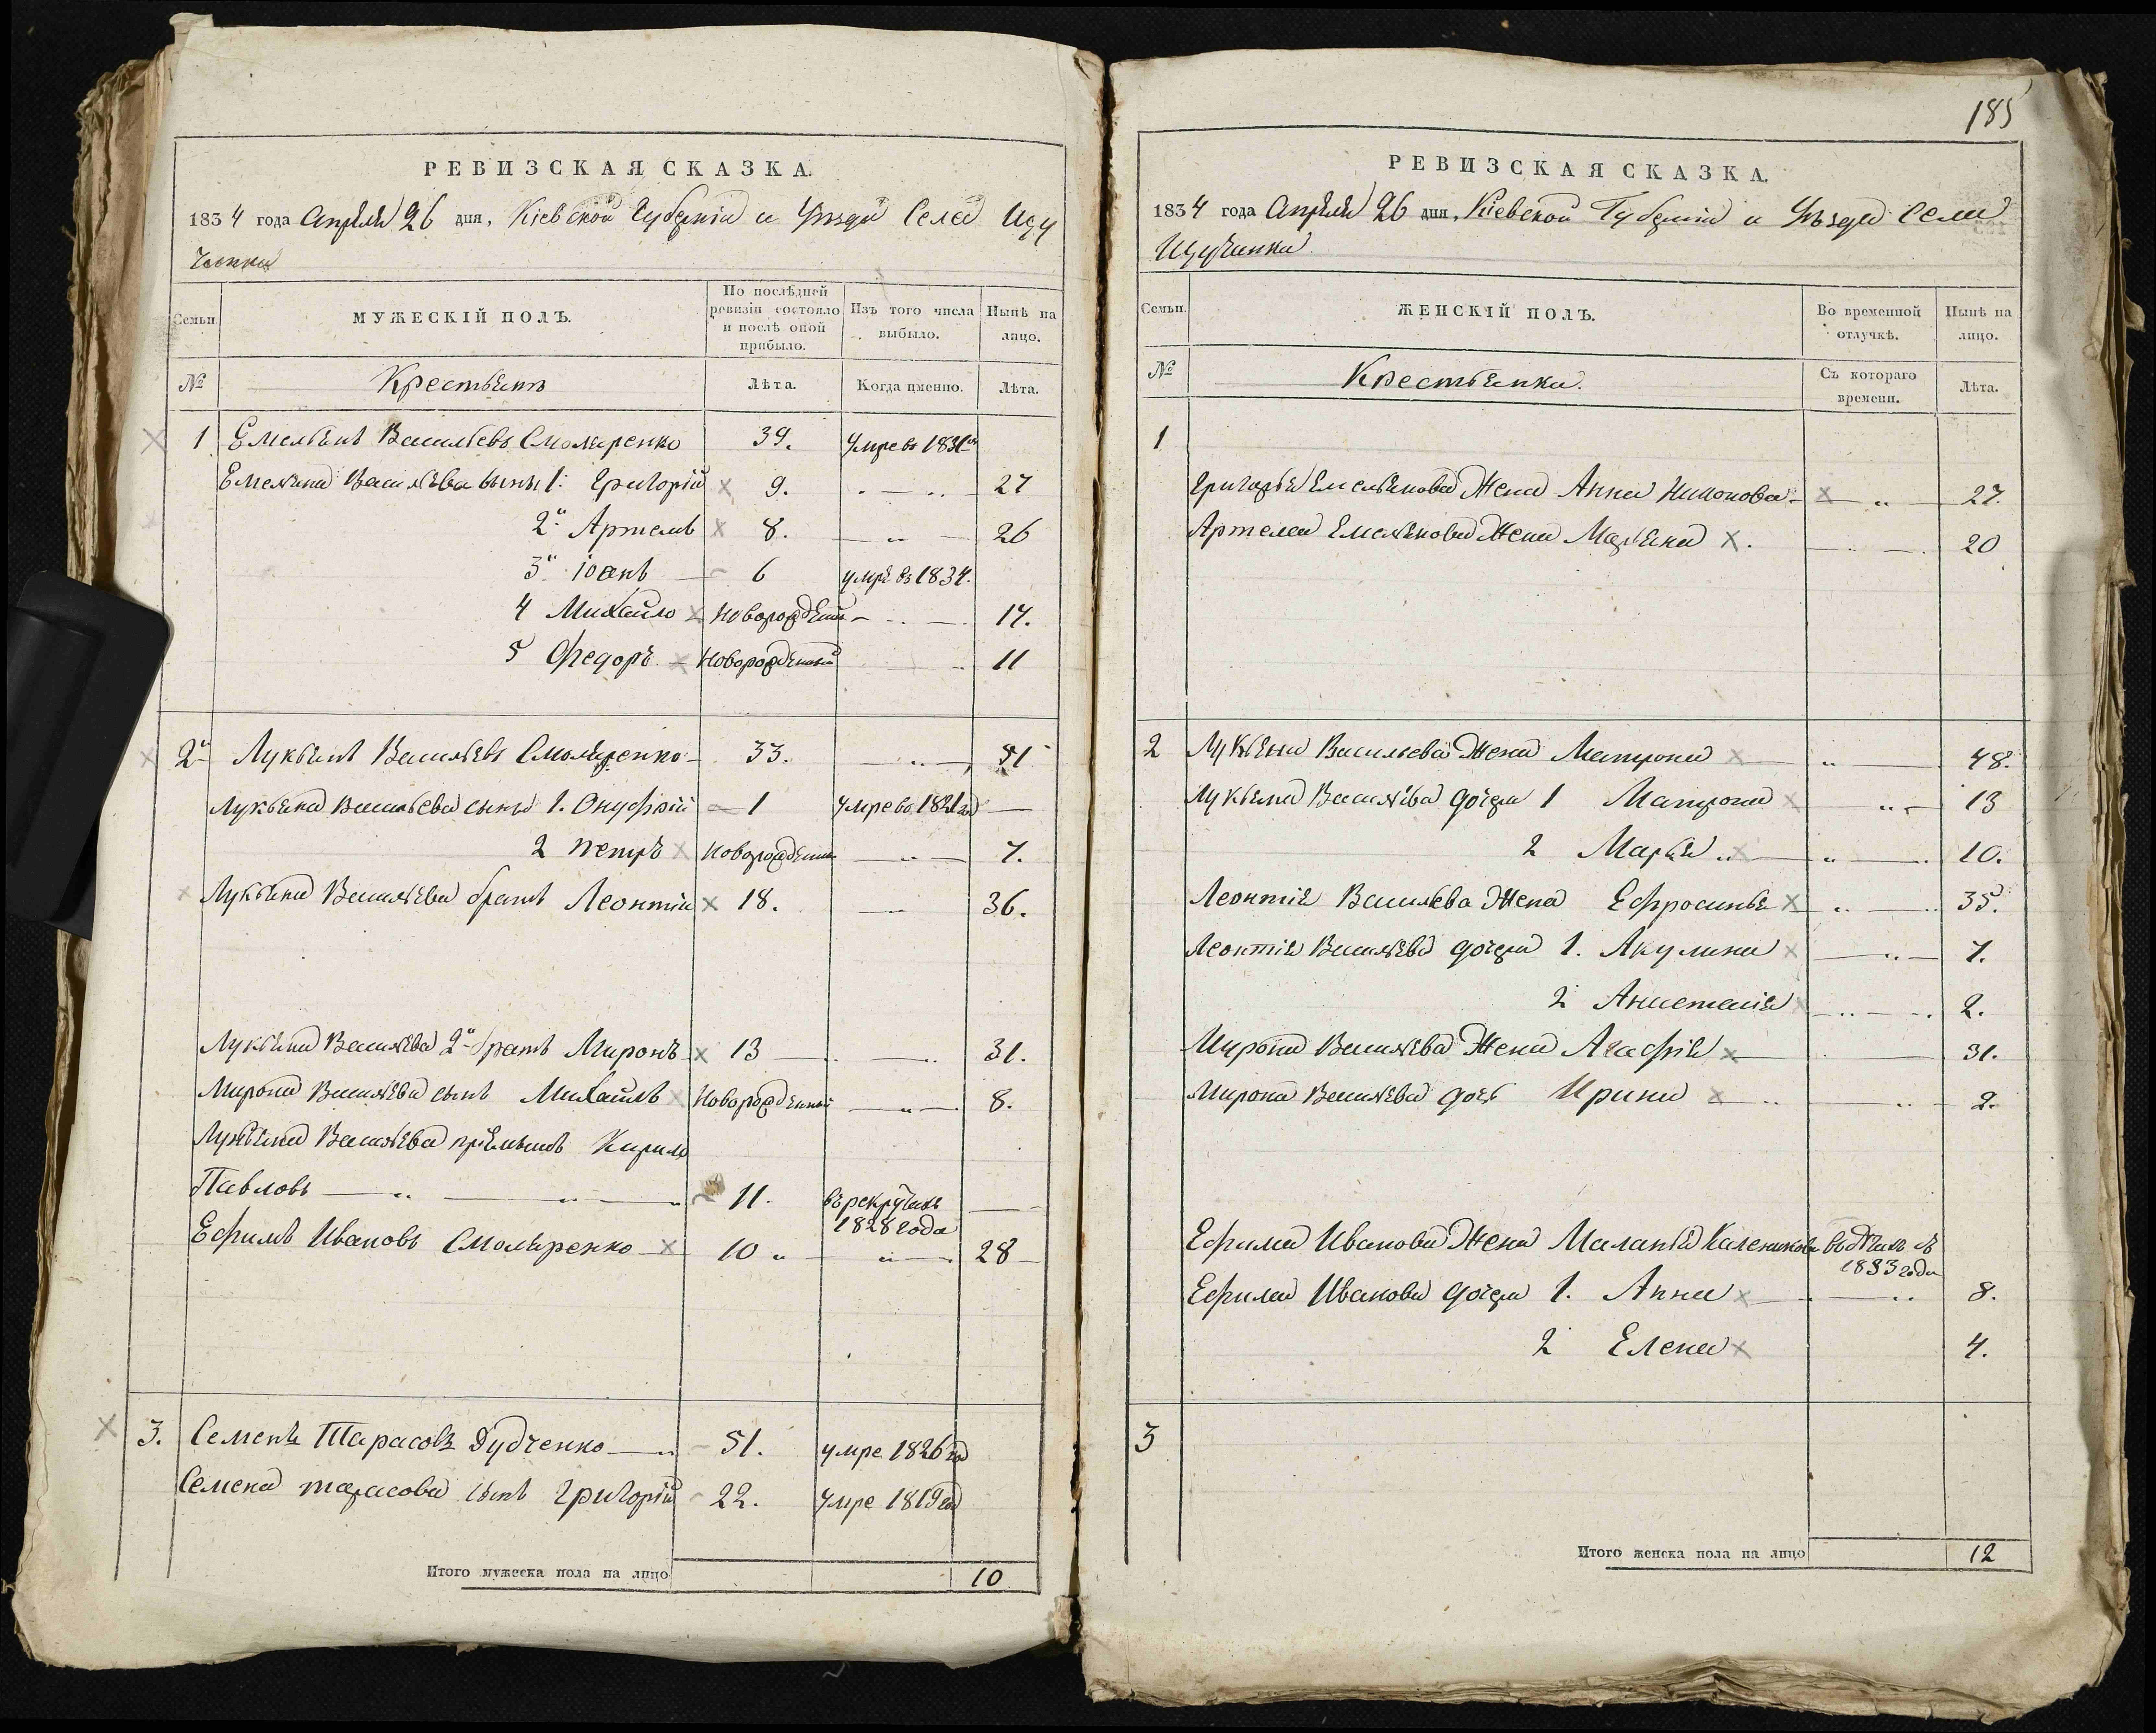 РЕВИЗСКАЯ СКАЗКА.
1834 года Апреля 26 дня, Кіевской Губерніи и Уезда Села Щу
чинки
Семьи.
МУЖЕСКІЙ ПОЛЪ.
По послѣдней ревизіи состояло и послѣ оной прибыло.
Изъ того числа выбыло.
Нынѣ на лицо.
№
Крестьянъ
Лѣта.
Когда именно.
Лѣта.
1 Емельянъ Васильевъ Смоляренко 39. умре въ 1831
Емельяна Васильева сыны 1. Григорій 9. 27
2й Артемъ 8. 26
3й Іоанъ 6 умре въ 1834.
4 Михайло Новорожденный 17.
5 Федоръ Новорожденный 11
2й Лукьянъ Васильевъ Смоляренко 33. 51
Лукьяна Васильева сыны 1. Онуфрій 1 умре въ 1821 год
2 Петръ Новорожденный 7.
Лукьяна Васильева братъ Леонтій 18. 36.
Лукьяна Васильева 2й братъ Миронъ 13 31.
Мирона Васильева сынъ Михаилъ Новорожденный 8.
Лукьяна Васильева пріемышъ Кирило
Павловъ 11. въ рекрутахъ 1828 года
Ефимъ Ивановъ Смоляренко 10 28
3. Семенъ Тарасовъ Дудченко 51. умре 1826 год
Семена Тарасова сынъ Григорій 22. умре 1819 год
Итого мужеска пола на лицо 10
185
РЕВИЗСКАЯ СКАЗКА.
1834 года Апреля 26 дня, Кіевской Губерніи и Уезда Села
Щучинки
Семьи.
ЖЕНСКІЙ ПОЛЪ.
Во временной отлучкѣ.
Нынѣ на лицо.
№
Крестьянки.
Съ котораго времени.
Лѣта.
1
Григорья Емельянова Жена Анна 27.
Артема Емельянова Жена Марьяна 20
2 Лукьяна Васильева Жена Матрона 48.
Лукьяна Васильева дочери 1 Матрона 13
2 Марья 10.
Леонтія Васильева Жена Ефросинья 35.
Леонтія Васильева дочери 1. Акулина 7.
2 Анастасія 2.
Мирона Васильева Жена Агафія 31.
Мирона Васильева дочь Ирина 2.
Ефима Иванова Жена Маланья 1833 года
Ефима Иванова дочери 1. Анна 8.
2 Елена 4.
3
Итого женска пола на лицо 12